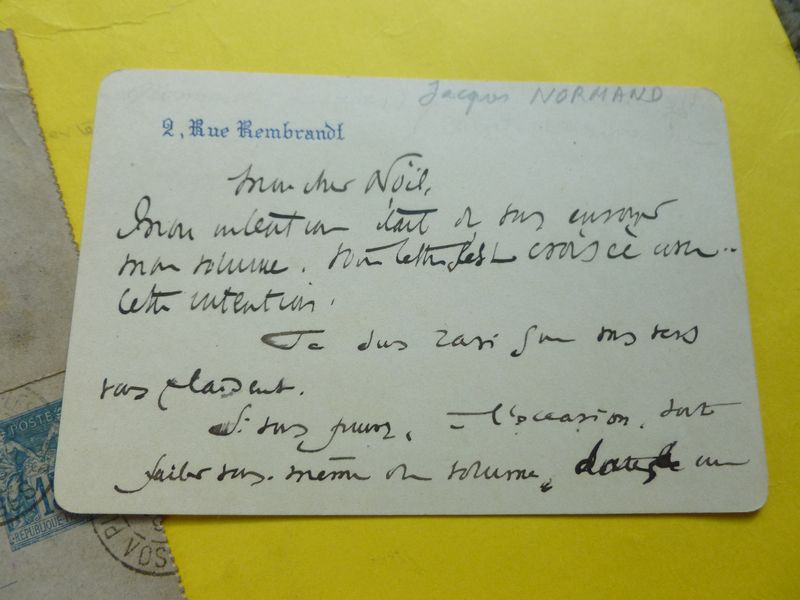 Jacques NORMAND
2, Rue Rembrandt
Mon cher Noël,
Mon intention était de vous envoyer
mon volume. Votre lettre s'est croisée avec
cette intention.
Je suis ravi que mes vers
vous plaisent.
Si vous pouvez, à l'occasion, soit
parler vous-même du volume, un
POSTE
RÉPUBLIQUE